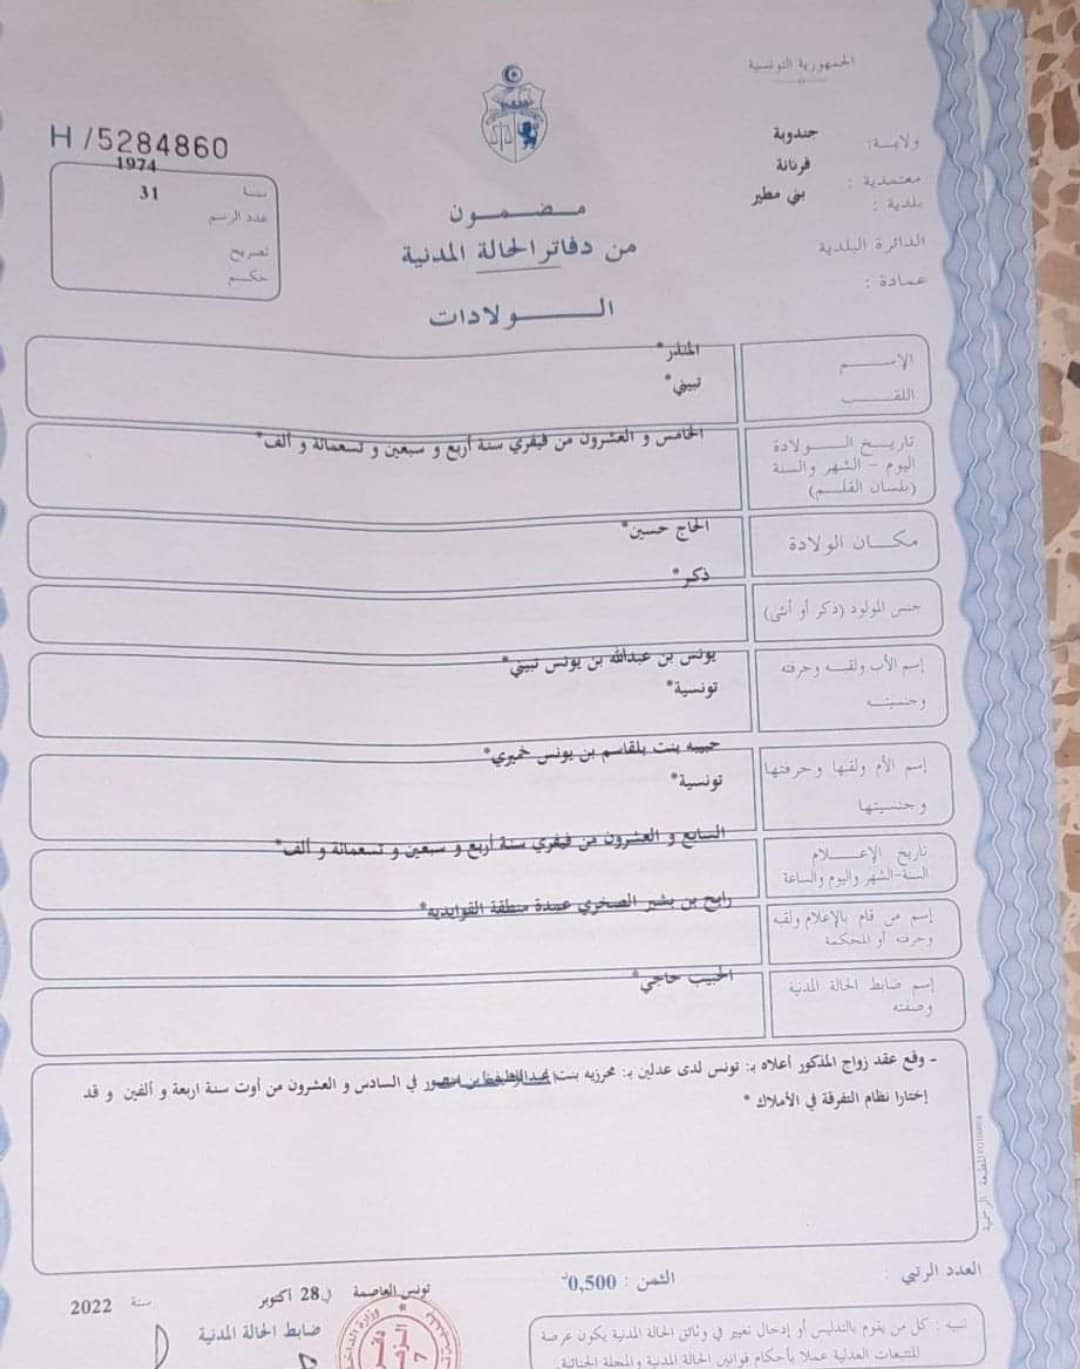 الجمهورية التونسية
H /5284860
ولايـــة: جندوبة
معتمدية : فرنانة
بلدية : بني مطير
الدائرة البلدية
عمادة :
سنــة 1974
عدد الرسم 31
تصريح
حكـــم
مـــضـــمـــون
من دفاتر الحالة المدنية
الـــــولادات
الإســــم المنذر*
اللقــــب تبيني*
تاريـــخ الـــــولادة
اليوم – الشهر والسنة
(بلسان القلـــم)
الخامس و العشرون من فيفري سنة أربع و سبعين و تسعمائة و ألف*
مكـــان الولادة الحاج حسين*
جنس المولود (ذكر أو أنثى) ذكر*
إسم الأب ولقبـــه وحرفته
وجنسيتـــه
يونس بن عبدالله بن يونس تبيني*
تونسية*
إسم الأم ولقبها وحرفتها
وجنسيتها
حبيبه بنت بلقاسم بن يونس خميري*
تونسية*
تاريخ الإعـــــلام
السنة-الشهر واليوم والساعة
السابع و العشرون من فيفري سنة أربع و سبعين و تسعمائة و ألف*
إسم من قام بالإعلام ولقبه
وحرفته أو المحكمة
رابح بن بشير الصخري عمدة منطقة القوايديه*
إسم ضابط الحالة المدنية
وصفته
الحبيب حاجي*
- وقع عقد زواج المذكور أعلاه بـ: تونس لدى عدلين بـ: محرزيه بنت في السادس و العشرون من أوت سنة اربعة و ألفين و قد
إختارا نظام التفرقة في الأملاك *
المطبعة الرسمية
العدد الرتبي :
الثمن : 0,500د
تونس العاصمة في 28 أكتوبر سنة 2022
ضابط الحالة المدنية
تنبيه : كل من يقوم بالتدليس أو إدخال تغيير في وثائق الحالة المدنية يكون عرضة
للتتبعات العدلية عملا بأحكام قوانين الحالة المدنية والمجلة الجنائية.